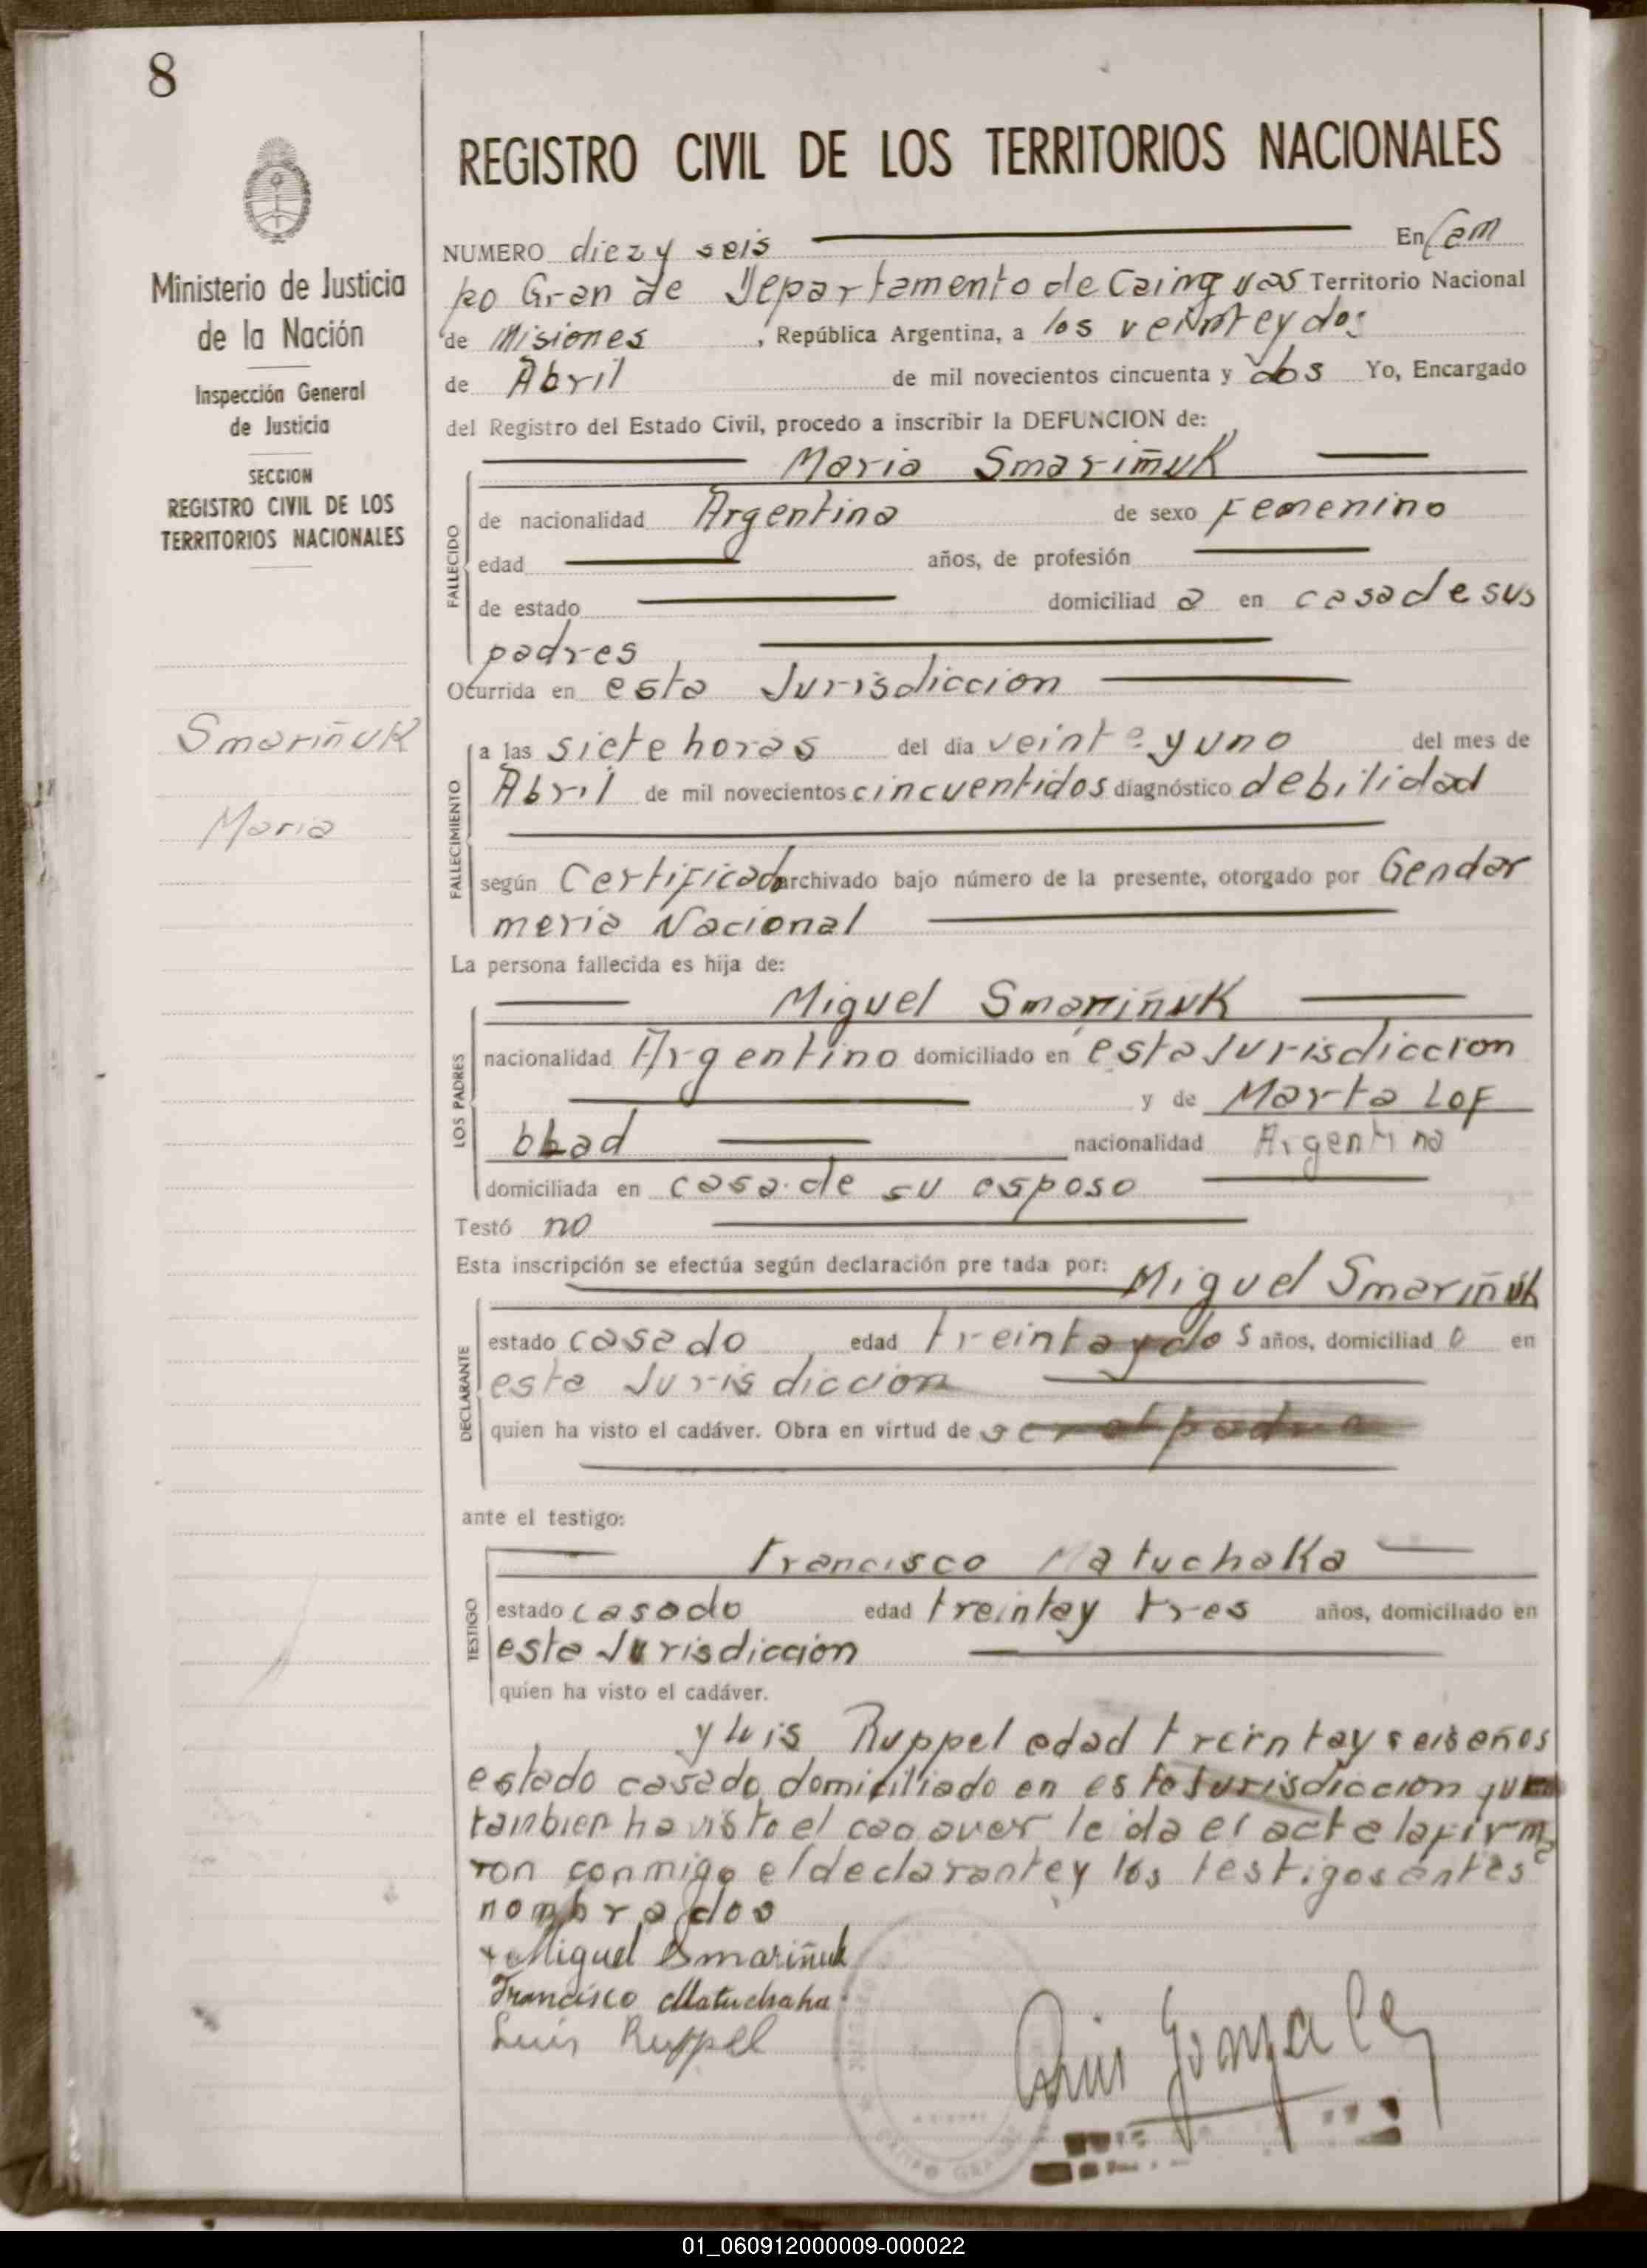 8
REGISTRO CIVIL DE LOS TERRITORIOS NACIONALES
Ministerio de Justicia
de la Nación
Inspección General
de Justicia
SECCION
REGISTRO CIVIL DE LOS
TERRITORIOS NACIONALES
Smariñuk
Maria
NUMERO diez y seis En Cam
po Grande Departamento de Cainguas Territorio Nacional
de Misiones , República Argentina, a los veinteydos
de Abril de mil novecientos cincuenta y dos Yo, Encargado
del Registro del Estado Civil, procedo a inscribir la DEFUNCION de:
Maria Smariñuk
FALLECIDO
de nacionalidad Argentina de sexo Femenino
edad años, de profesión
de estado domiciliad a en casa de sus
padres
Ocurrida en esta Jurisdiccion
FALLECIMIENTO
a las siete horas del dia veinte y uno del mes de
Abril de mil novecientos cincuentidos diagnóstico debilidad
según Certificado archivado bajo número de la presente, otorgado por Gendar
meria Nacional
La persona fallecida es hija de:
Miguel Smariñuk
LOS PADRES
nacionalidad Argentino domiciliado en esta Jurisdiccion
y de Marta Lof
bbad nacionalidad Argentina
domiciliada en casa de su esposo
Testó no
Esta inscripción se efectúa según declaración pre tada por: Miguel Smariñuk
DECLARANTE
estado casado edad treinta y dos años, domiciliad o en
esta Jurisdiccion
quien ha visto el cadáver. Obra en virtud de ser el padre
ante el testigo:
Francisco Matuchaka
TESTIGO
estado casado edad treintay tres años, domiciliado en
esta Jurisdiccion
quien ha visto el cadáver.
y Luis Ruppel edad treintay seis años
estado casado domiciliado en esta Jurisdiccion que
tanbien ha visto el cadaver leida el acta la firma
ron conmigo el declarante y los testigos antes
nombrados
Miguel Smariñuk
Francisco Matuchaka
Luis Ruppel
Luis Gonzalez
CAMPO GRANDE
01_060912000009-000022